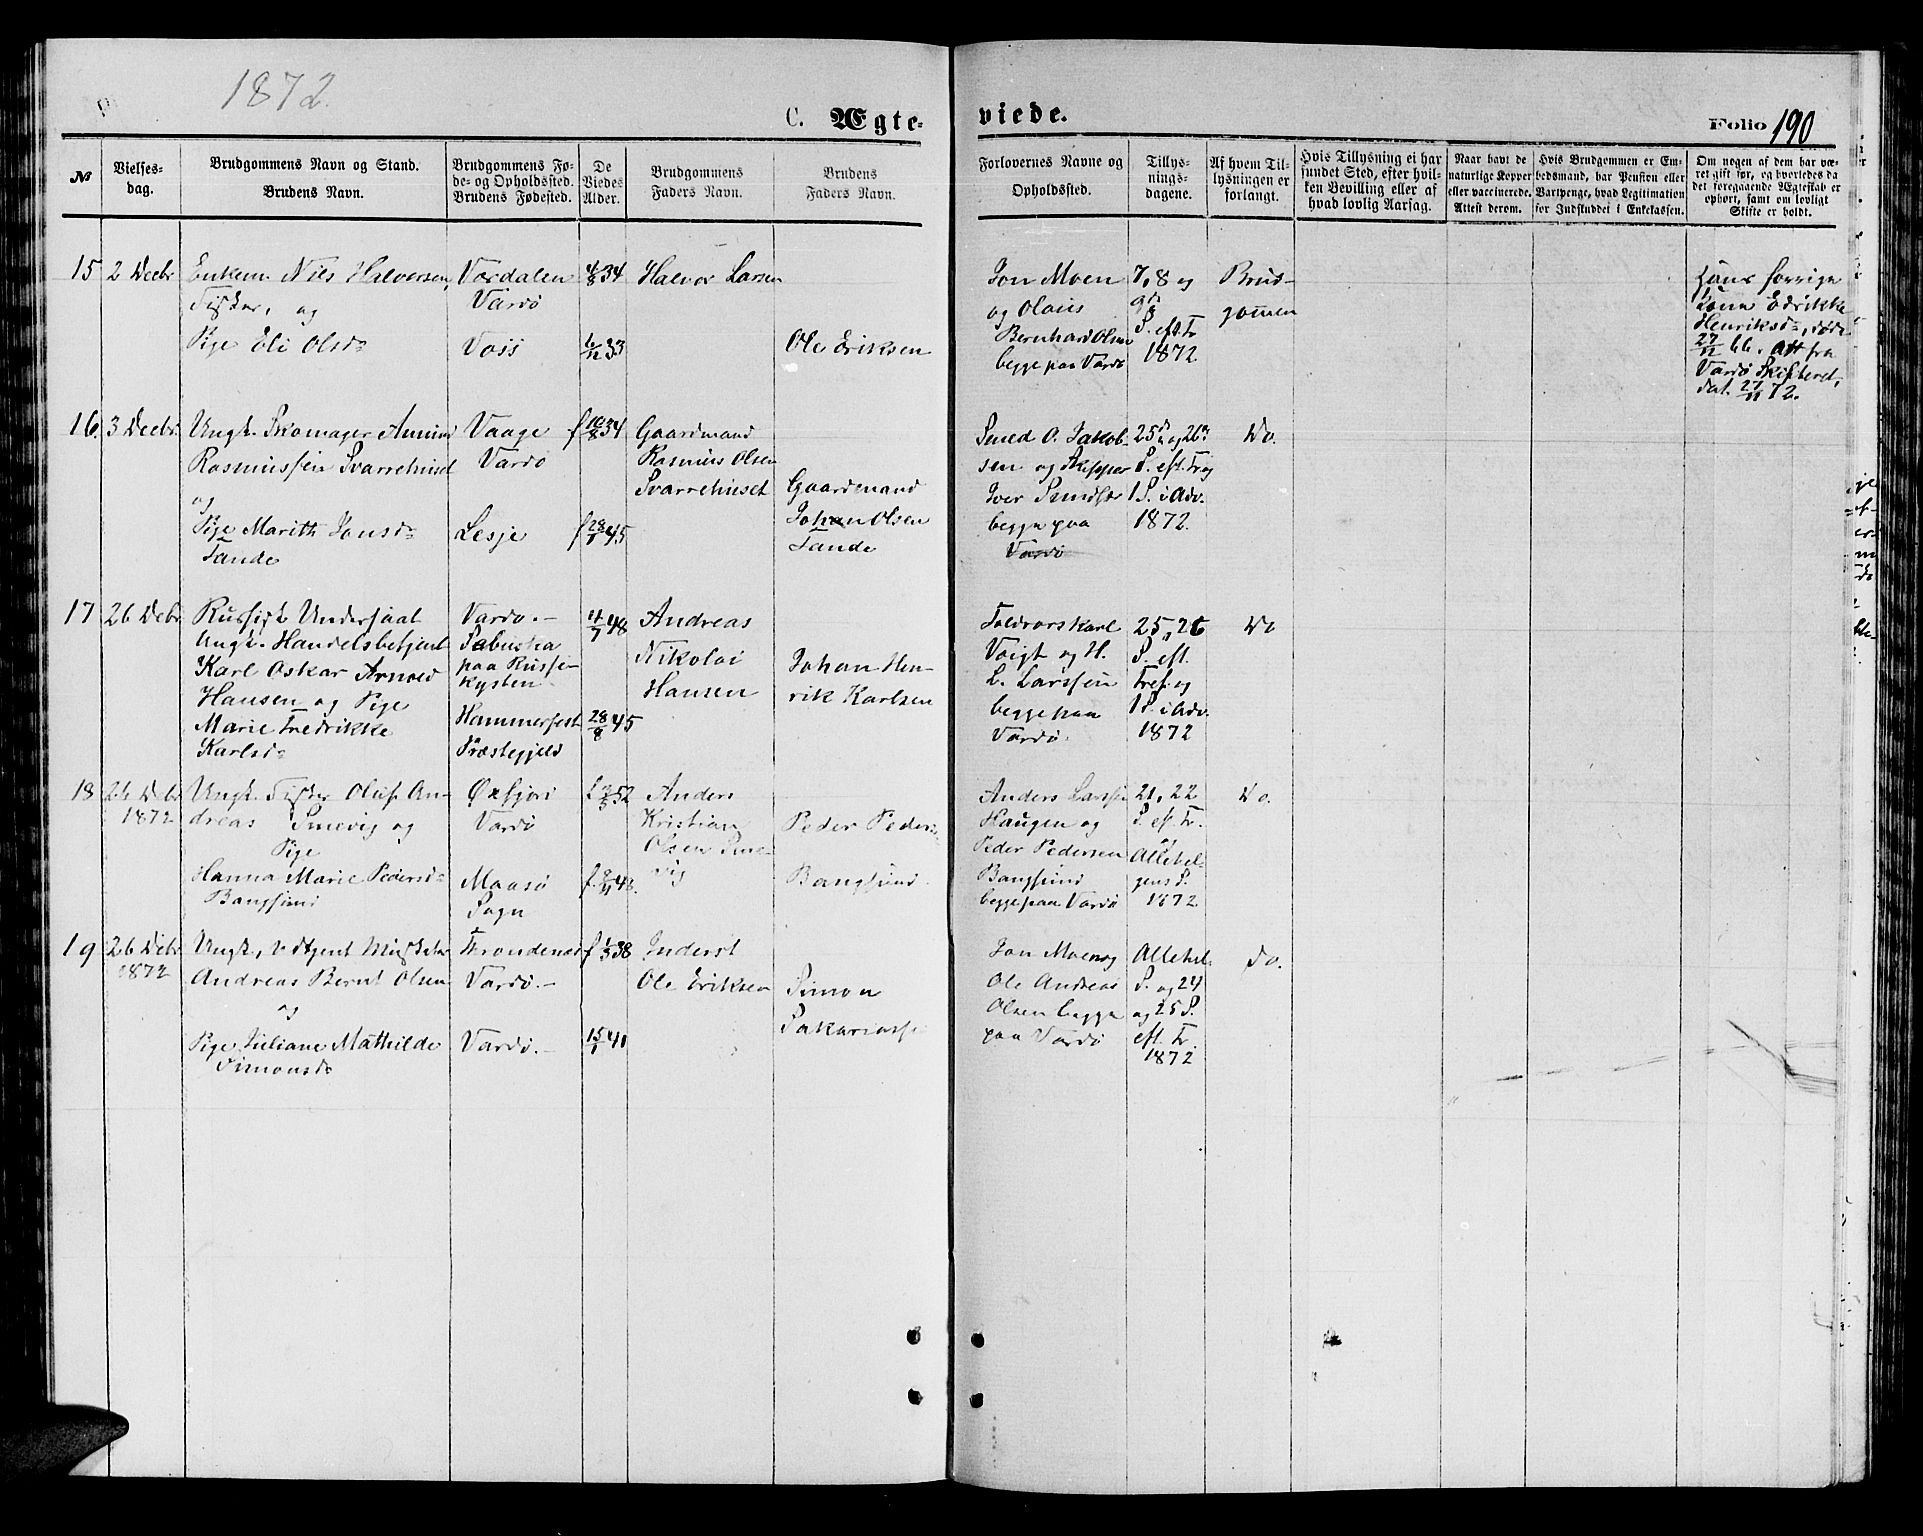 1872.
C. Ægte-
viede.
Folio 190
№
Vielses-
dag.
Brudgommens Navn og Stand.
Brudens Navn.
Brudgommens Fø-
de- og Opholdssted.
Brudens Fødested.
De
Viedes
Alder.
Brudgommens
Faders Navn.
Brudens
Faders Navn.
Forlovernes Navne og
Opholdssted.
Tillys-
nings-
dagene.
Af hvem Til-
lysningen er
forlangt.
Hvis Tillysning ei har
fundet Sted, efter hvil-
ken Bevilling eller af
hvad lovlig Aarsag.
Naar havt de
naturlige Kopper
eller vaccinerede.
Attest derom.
Hvis Brudgommen er Em-
bedsmand, har Pension eller
Vartpenge, hvad Legitimation
for Indskuddet i Enkekassen.
Om nogen af dem har væ-
ret gift før, og hvorledes da
det foregaaende Ægteskab er
ophørt, samt om lovligt
Skifte er holdt.
15
2 Decbr.
Enkem. Nils Halvorsen,
Fisker, og
Pige Eli Olsd=
Værdalen
Vardø
Voss
4/8 34
6/12 33
Halvor Larsen
Ole Eriksen
Jon Moen
og Olaus
Bernhard Olsen
begge paa Vardø
7, 8 og
9de
S. eft. Tr
1872
Brud-
gommen
Hans forrige
Kone Edrikke
Henriksd=, døde
27/12 66. Att fra
Vardø Skifteret,
dat. 27/11 72.
16.
3 Decbr.
Ungk. Skomager Amund
Rasmussen Svarrehuset
og
Pige Marith Jonsd=
Tande
Vaage
Vardø
Lesje
f 10/8 34
f 28/1 45
Gaardmand
Rasmus Olsen
Svarrehuset
Gaardmand
Johan Olsen
Tande
Smed O. Jakob-
sen og Skipper
Iver
begge paa
Vardø
25de og 26de
S. eft. Tr og
1 S. i Adv.
1872.
Do.
17
26 Debr.
Russisk Undersaat
Ungk. Handelsbetjent
Karl Oskar Arnold
Hansen og Pige
Marie Fredrikke
Karlsd=
Vardø.-
paa Russe-
kysten
Hammerfest
Præstegjeld
11/7 48
28/8 45
Andreas
Nikolai
Hansen
Johan Hen-
rik Karlsen
Toldrorskarl
Voigt og H.
L. Larssen
begge paa
Vardø.
25, 26
S. eft.
Tref. og
1 S. i Adv.
1872
Do
18
26 Debr
1872
Ungk. Fisker Oluf An-
dreas Smevig og
Pige
Hanna Marie Pedersd=
Bangsund
Øxfjord
Vardø
Maasø
Sogn
52
f. 8/11 48.
Anders
Kristian
Olsen Sme-
vig
Peder Peders-
Bangsund.
Anders Larssen
Haugen og
Peder Pedersen
Bangsund
begge paa Vardø
21, 22
S. ef. Tr.
og
Allehel-
gens S.
1872
Do.
19
26 Debr
1872
Ungk., Musketer
Andreas Bernt Olsen
og
Pige Juliane Mathilde
Simonsd=
Throndenæs
Vardø.-
Vardø.-
f 1/3 38
15/1 41
Inderst
Ole Eriksen
Simon
Sakariass
Jon Moen og
Ole Andreas
Olsen begge
paa Vardø
Allehel.
S. og 24
og 25 S.
eft. Tr.
1872
do.